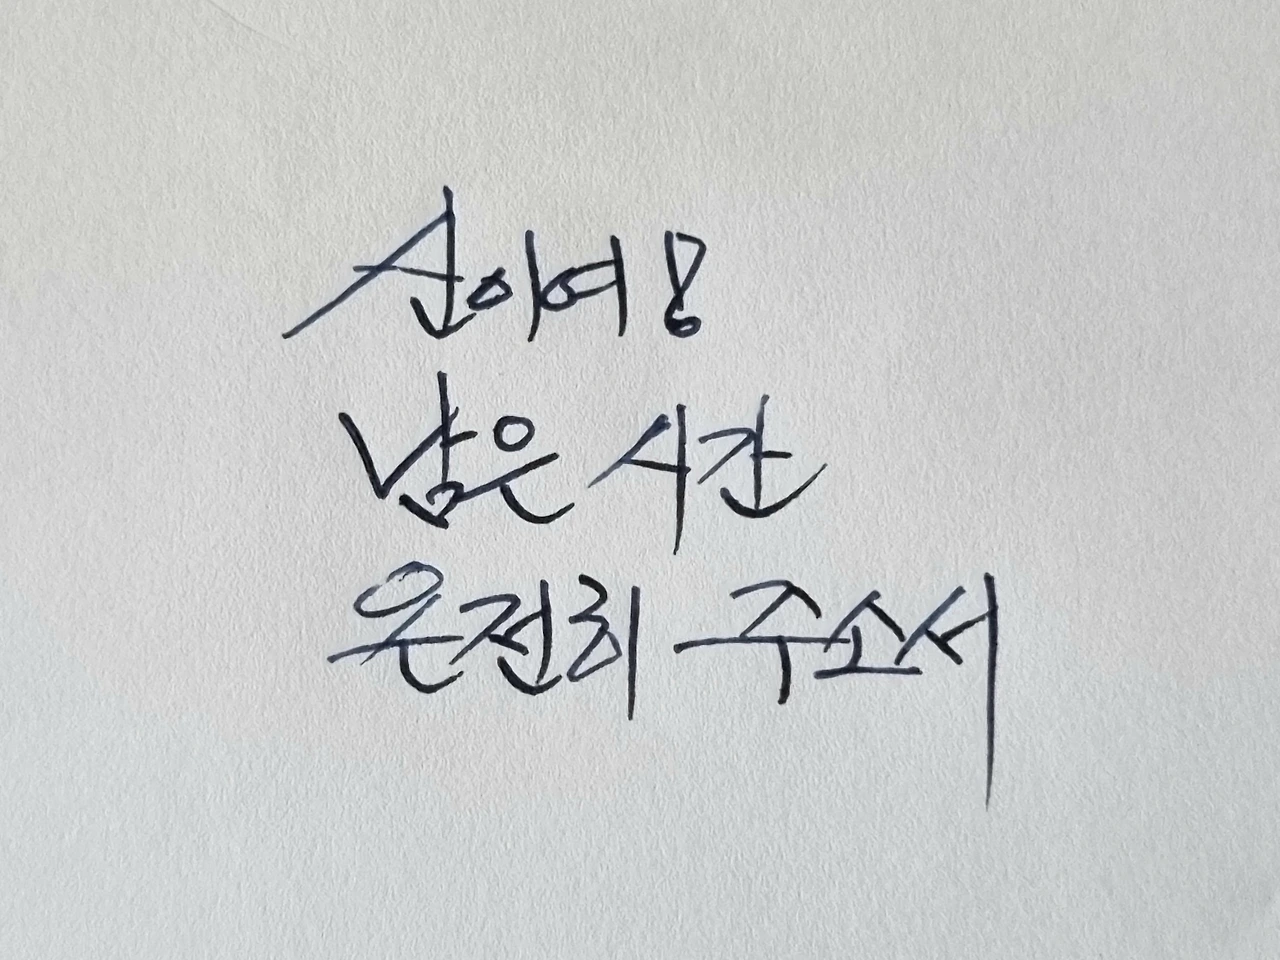 신이여!
남은 시간
온전히 주소서